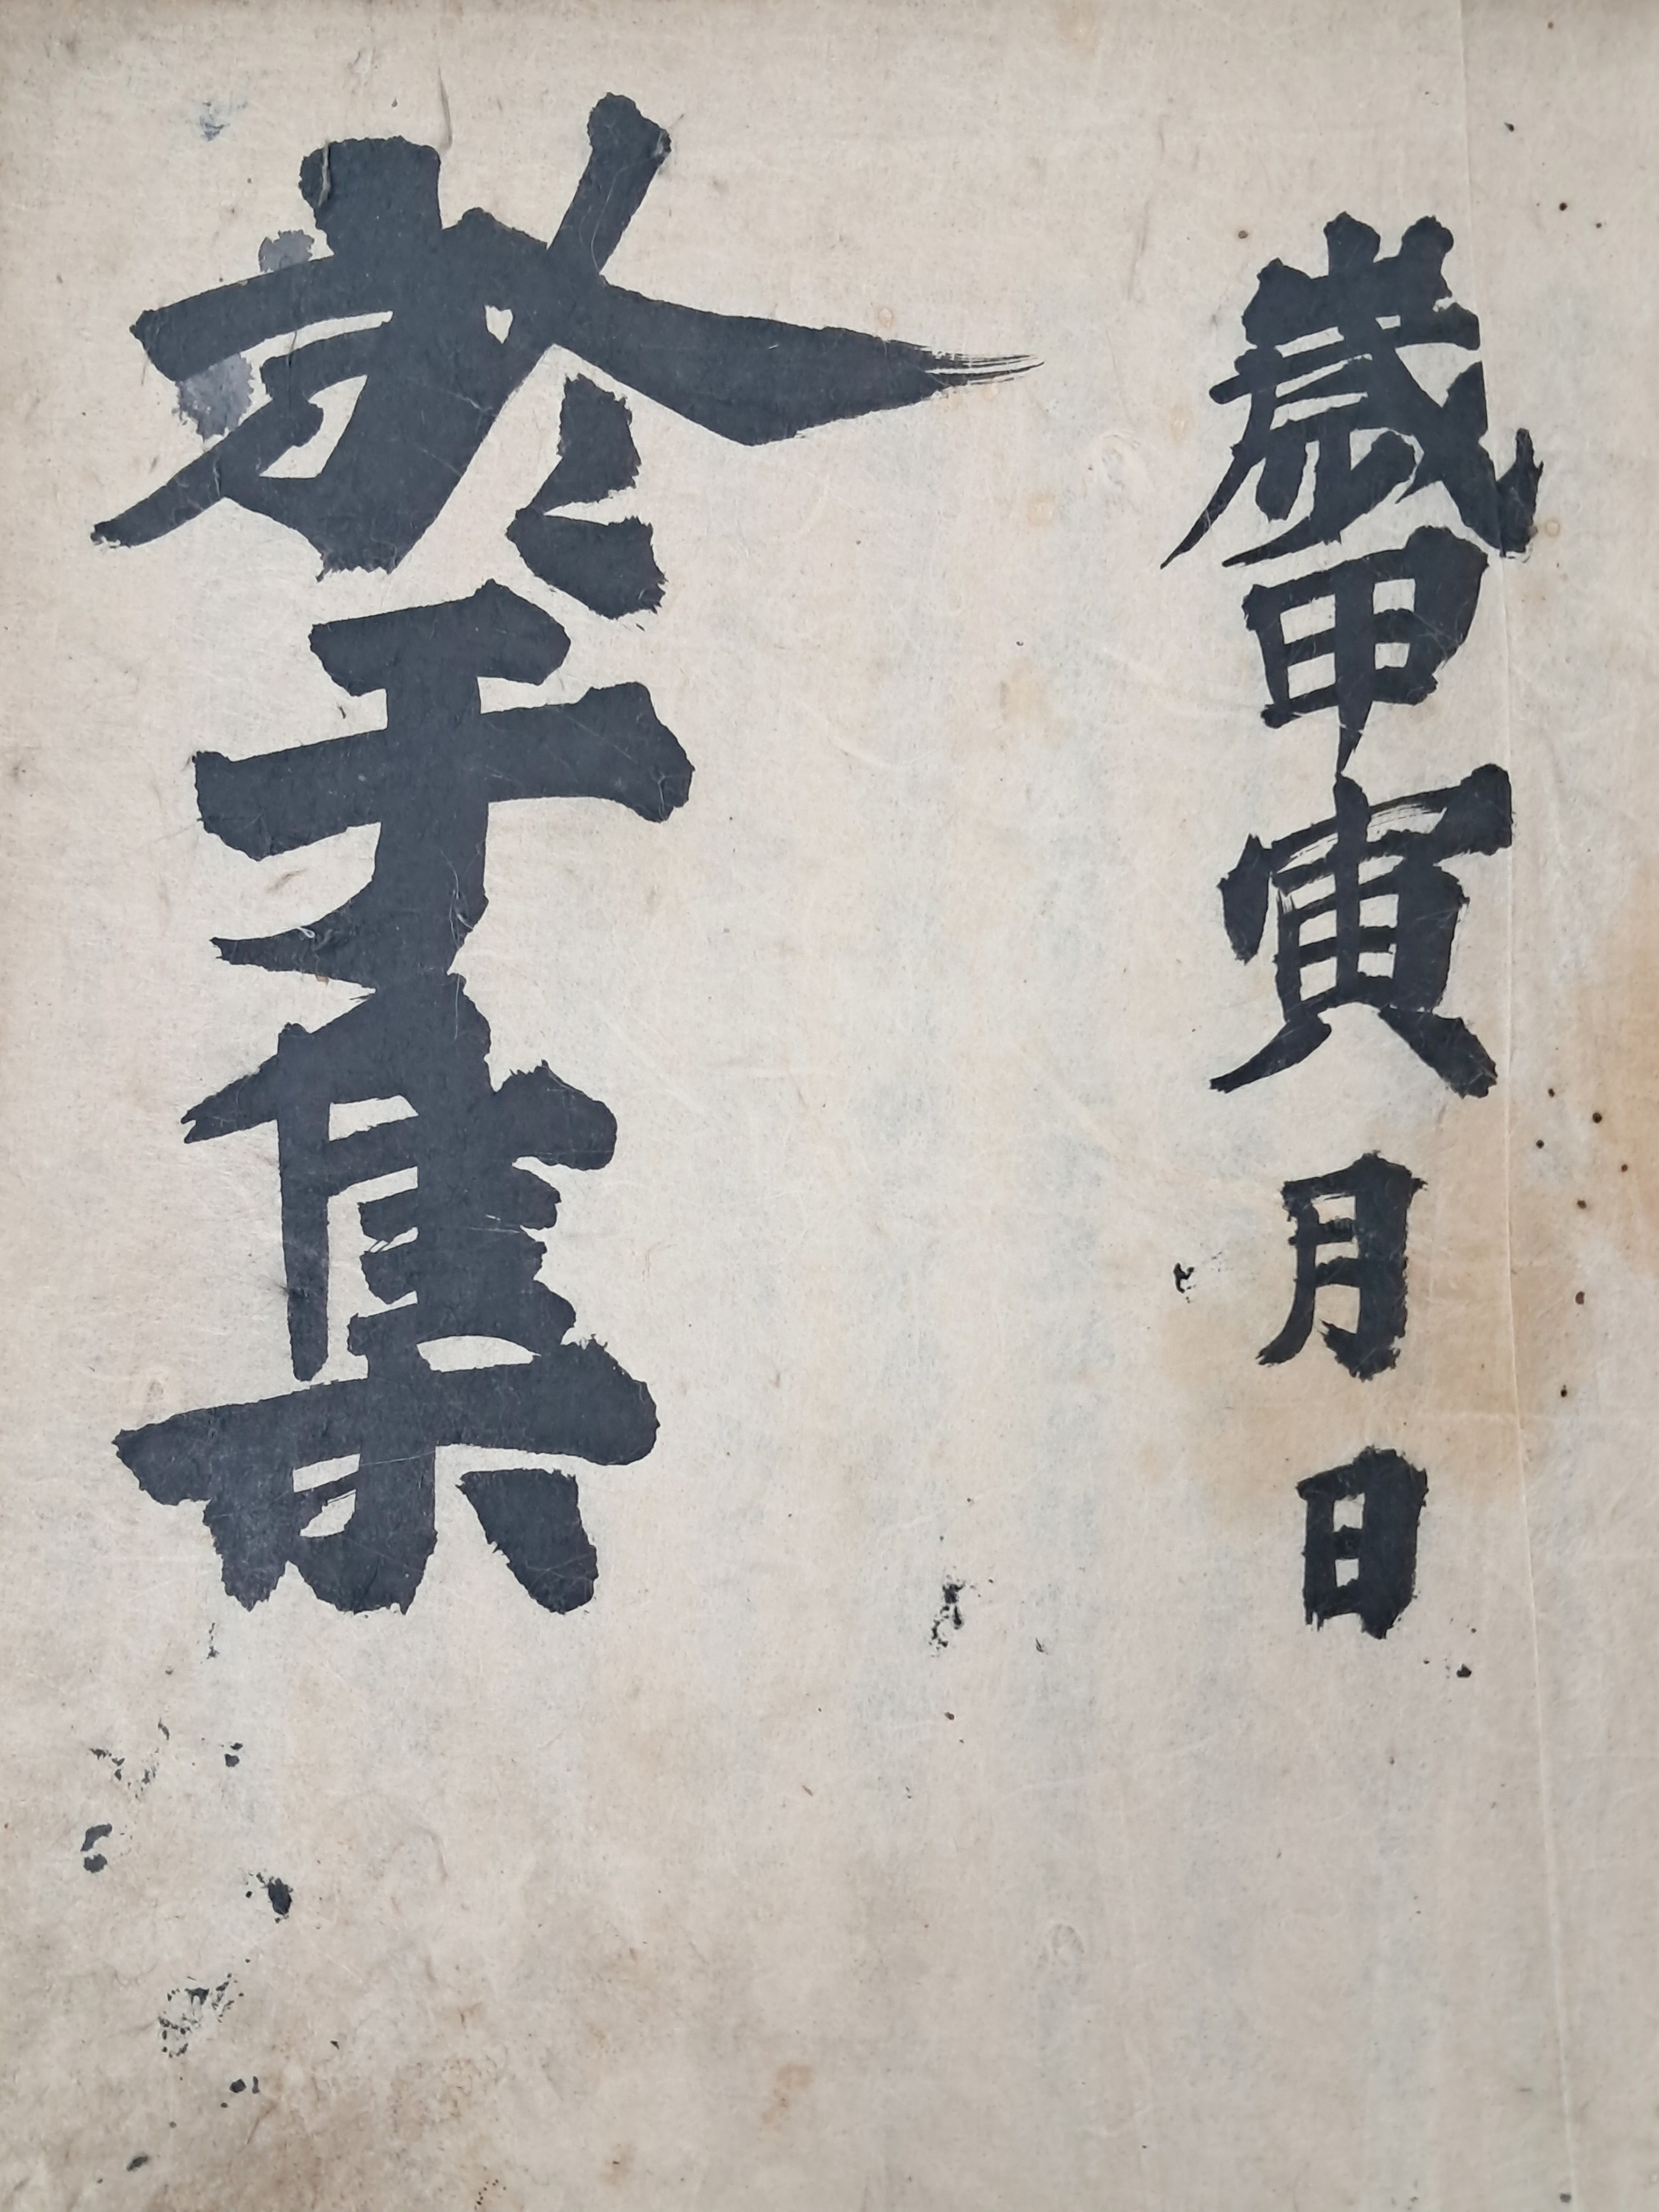 歳甲寅月日
於于集